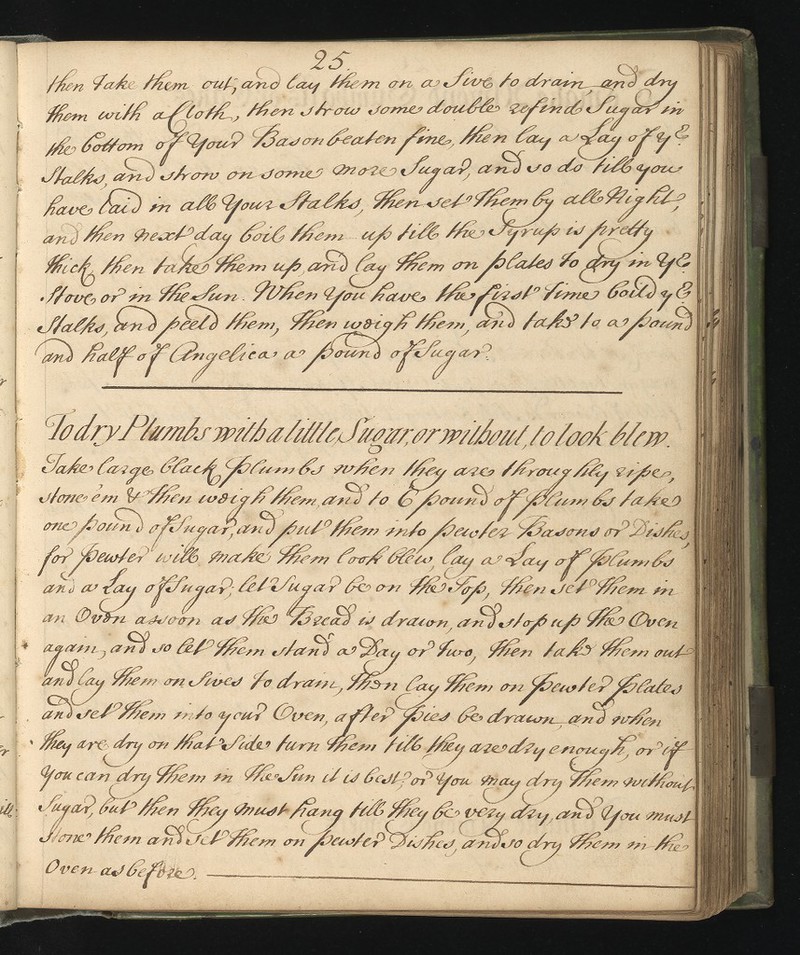 25.
then take them out, and lay them on a Sive to drain, and dry
them with a Cloth, then strow some double refind Sugar in
the bottom of Your Bason beaten fine, then lay a Lay of ye.
Stalks, and strow on some more Sugar, and so do till you
have laid in all Your Stalks, then set them by all Night,
and then next day boil them up till the Syrup is pretty
thick, then take them up, and lay them on plates to dry in Ye.
Stove or in the Sun. When You have the first time boild ye
Stalks, and peeld them, then weigh them, and take to a pound
and half of Angelica a pound of Sugar.
To dry Plumbs with a little Sugar, or without, to look blew.
Take large black plumbs when they are throughly ripe,
stone 'em & then weigh them, and to 6 pound of plumbs take
one pound of Sugar, and put them into pewter Basons or Dishes,
for pewter will make them look blew, lay a Lay of plumbs
and a Lay of Sugar, let Sugar be on the Top, then set them in
an Oven assoon as the Bread is drawn, and stop up the Oven
again, and so let them stand a Day or two, then take them out
and lay them on Sives to drain, then lay them on pewter plates
and set them into your Oven, after pies be drawn, and when
they are dry on that Side turn them till they are dry enough, or if
You can dry them in the Sun it is best, or You may dry them without
Sugar, but then they must hang till they be very dry, and You must
stone them and set them on pewter Dishes, and so dry them in the
Oven as before.